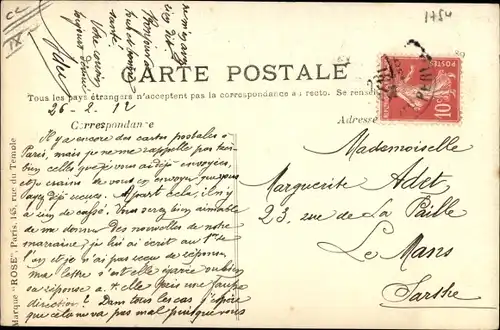 1754
CC
IX
CARTE POSTALE
Tous les pays étrangers n'acceptent pas la correspondance au recto. Se
26-2-12
Correspondance
Adresse
RÉPUBLIQUE FRANÇAISE
POSTES
10c
Il y a encore des cartes postales à
Paris, mais je ne me rappelle pas très
bien celles que je vous ai déjà envoyées,
et je crains de vous en envoyer que vous
ayez déjà reçues. A part cela, il n'y
a rien de cassé. Vous serez bien aimable
de me donner des nouvelles de notre
marraine, je lui ai écrit au 1er de
l'an et je n'ai pas reçu de réponse
ma lettre s'est elle égarée ou bien
sa réponse a-t-elle pris une fausse
direction? Dans tous les cas j'espère
que cela ne va pas mal puisque vous
Mademoiselle
Marguerite Adet
23, rue de La Paille
Le Mans
Sarthe
Marque "ROSE" Paris, 145, rue du Temple